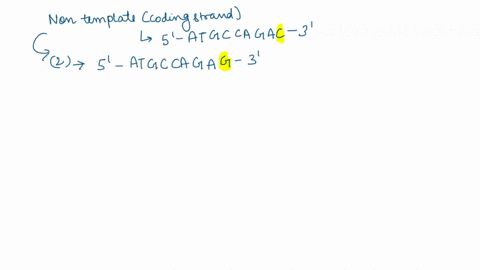 Non template (coding strand]
↳ 5'- ATGCCAGAC-3'
(2)→ 5'- ATGCCAGAG-3'